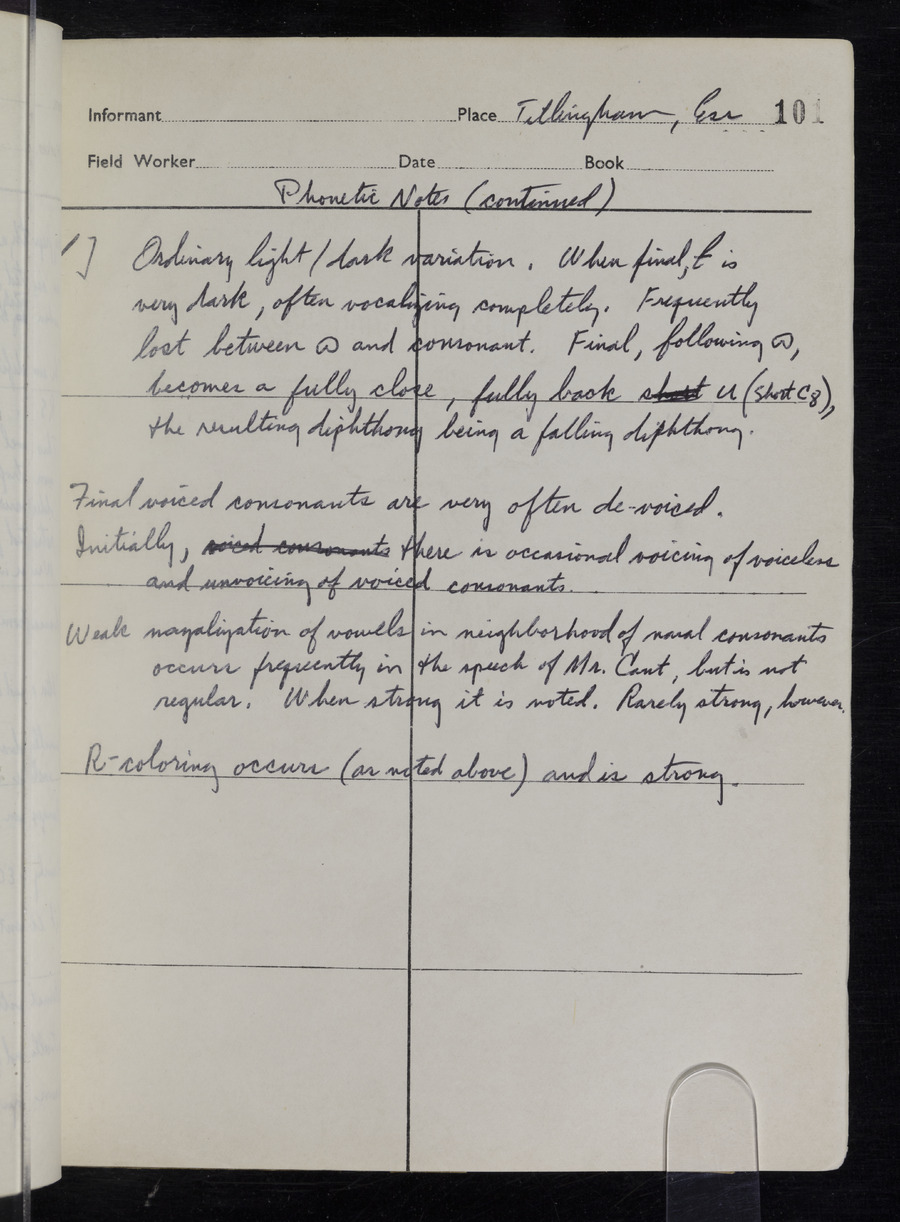 Informant Place Tillingham, Ess 101
Field Worker Date Book
Phonetic Notes (continued)
l] Ordinary light / dark variation. When final, ɫ is
very dark, often vocalizing completely. Frequently
lost between ɷ and consonant. Final, following ɷ,
becomes a fully close, fully back short u (short C8),
the resulting diphthong being a falling diphthong.
Final voiced consonants are very often de-voiced.
Initially, voiced consonants there is occasional voicing of voiceless
and unvoicing of voiced consonants.
Weak nazalization of vowels in neighborhood of nasal consonants
occurs frequently in the speech of Mr. Cant, but is not
regular. When strong it is noted. Rarely strong, however.
R-coloring occurs (as noted above) and is strong.